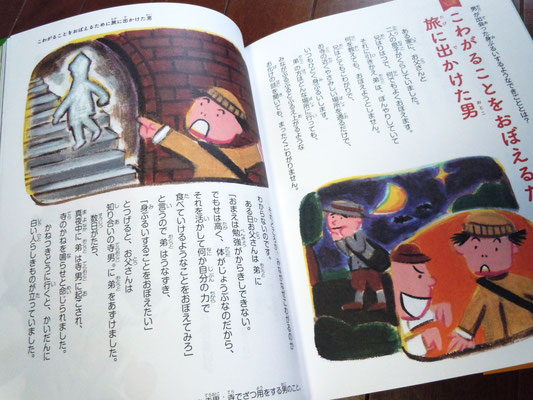 男が出会った身ぶるいするようなできごととは？
こわがることをおぼえるた
旅に出かけた男
ある家に、お父さんと
二人の息子がくらしていました。
それに引きかえ弟は、ぼんやりしていて
何を教えても、おぼえようとしません。
おばけの話を聞いても、まったくこわがりません。
こわがることをおぼえるために旅に出かけた男
わからないのです。
ある日お父さんは弟に
「おまえは勉強がからきしできない。
でもせは高く、体がじょうぶなのだから、
それを活かして何か自分の力で
食べていけるようなことをおぼえてみろ」
と言うので弟はうなずき、
「身ぶるいすることをおぼえたい」
とつげると、お父さんは
知り合いの寺男に弟をあずけました。
数日がたち、
真夜中に弟は寺男に起こされ、
寺のかねを鳴らせと命じられました。
かねつきどうに行くと、かいだんに
白い人らしきものが立っていました。
寺でざつ用をする男のこと。